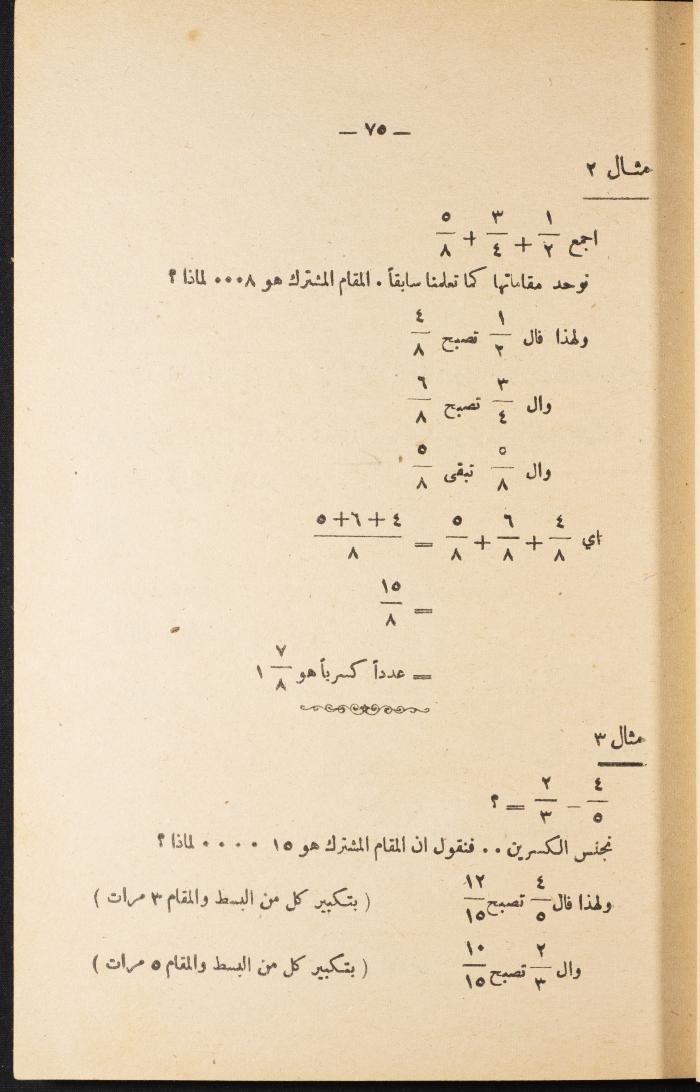 — ٧٥ —
مثال ٢
اجمع ١/٢ + ٣/٤ + ٥/٨
نوحد مقاماتها كما تعلمنا سابقاً . المقام المشترك هو ٨ ... لماذا ؟
ولهذا فال ١/٢ تصبح ٤/٨
وال ٣/٤ تصبح ٦/٨
وال ٥/٨ تبقى ٥/٨
اي ٤/٨ + ٦/٨ + ٥/٨ = (٤+٦+٥)/٨
= ١٥/٨
= عدداً كسرياً هو ٧/٨ ١
مثال ٣
٤/٥ − ٢/٣ = ؟
نجنس الكسرين .. فنقول ان المقام المشترك هو ١٥ .... لماذا ؟
ولهذا فال ٤/٥ تصبح ١٢/١٥ ( بتكبير كل من البسط والمقام ٣ مرات )
وال ٢/٣ تصبح ١٠/١٥ ( بتكبير كل من البسط والمقام ٥ مرات )